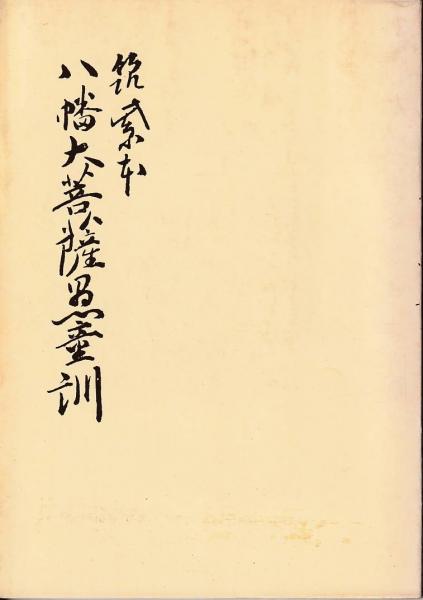 筑紫本
八幡大菩薩愚童訓